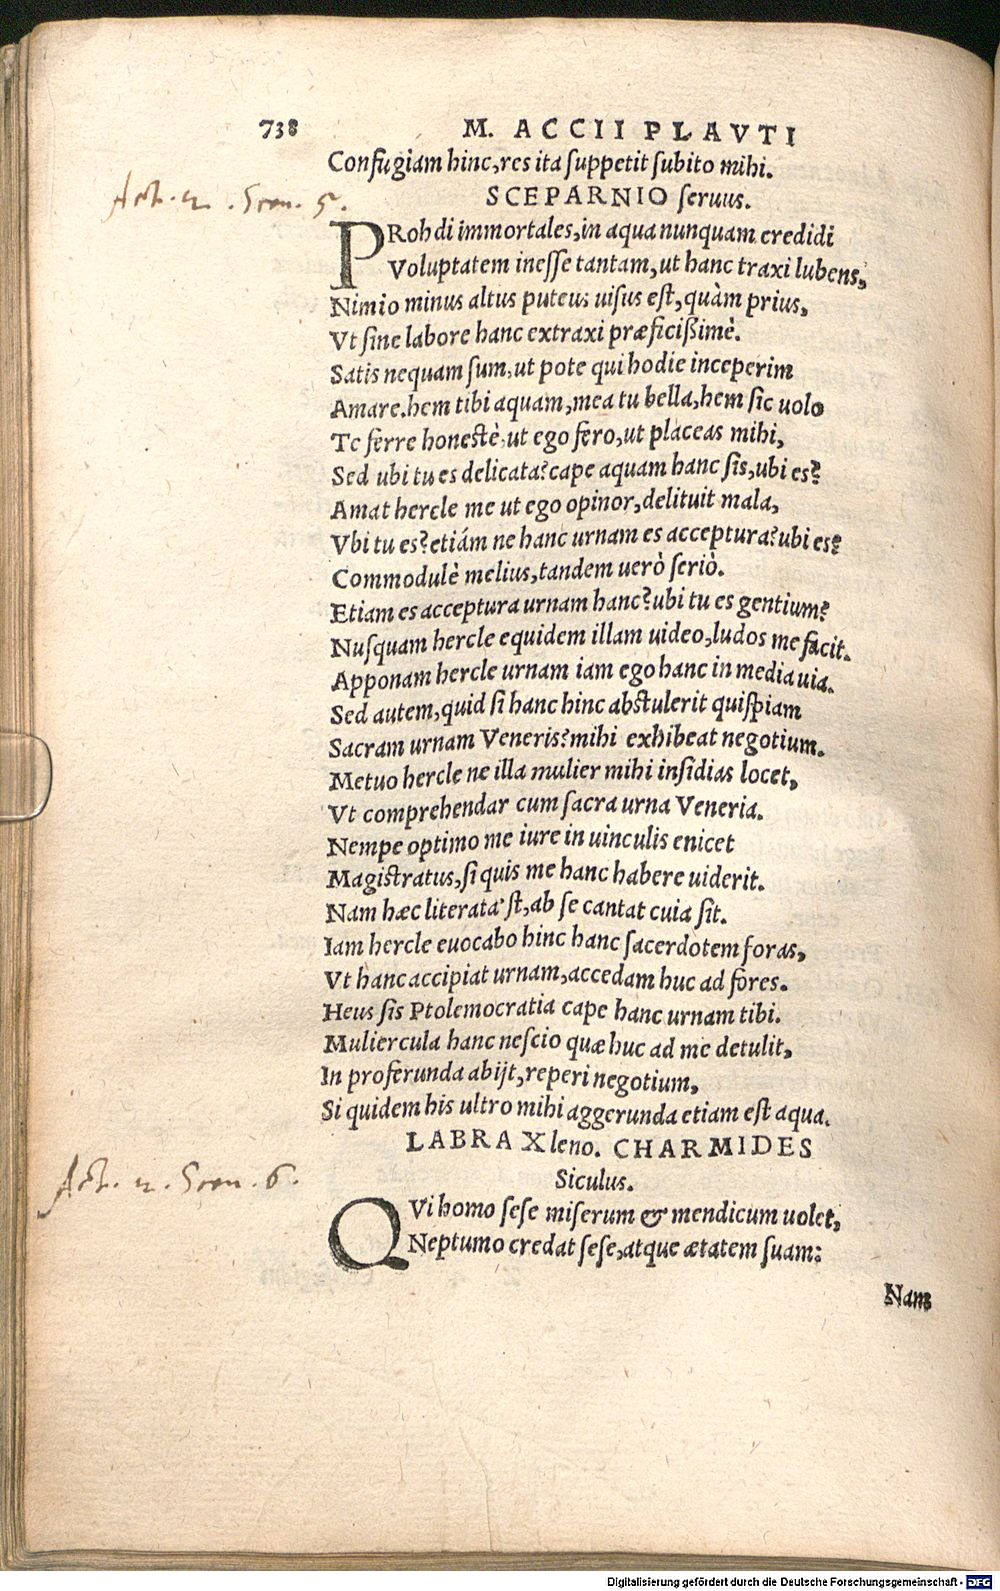 738 M. ACCII PLAVTI
Confugiam hinc, res ita suppetit subito mihi.
Act. 2. Scen. 5.
SCEPARNIO seruus.
PRoh di immortales, in aqua nunquam credidi
Voluptatem inesse tantam, ut hanc traxi lubens,
Nimio minus altus puteus uisus est, quàm prius,
Vt sine labore hanc extraxi præficißimè.
Satis nequam sum, ut pote qui hodie inceperim
Amare. hem tibi aquam, mea tu bella, hem sic uolo
Te ferre honestè, ut ego fero, ut placeas mihi,
Sed ubi tu es delicata? cape aquam hanc sis, ubi es?
Amat hercle me ut ego opinor, delituit mala,
Vbi tu es? etiám ne hanc urnam es acceptura? ubi es?
Commodulè melius, tandem uerò seriò.
Etiam es acceptura urnam hanc? ubi tu es gentium?
Nusquam hercle equidem illam uideo, ludos me facit.
Apponam hercle urnam iam ego hanc in media uia.
Sed autem, quid si hanc hinc abstulerit quispiam
Sacram urnam Veneris? mihi exhibeat negotium.
Metuo hercle ne illa mulier mihi insidias locet,
Vt comprehendar cum sacra urna Veneria.
Nempe optimo me iure in uinculis enicet
Magistratus, si quis me hanc habere uiderit.
Nam hæc literata'st, ab se cantat cuia sit.
Iam hercle euocabo hinc hanc sacerdotem foras,
Vt hanc accipiat urnam, accedam huc ad fores.
Heus sis Ptolemocratia cape hanc urnam tibi.
Muliercula hanc nescio quæ huc ad me detulit,
In proferunda abijt, reperi negotium,
Si quidem his ultro mihi aggerunda etiam est aqua.
LABRAX leno. CHARMIDES
Act. 2. Scen. 6.
Siculus.
QVi homo sese miserum & mendicum uolet,
Neptumo credat sese, atque ætatem suam:
Nam
Digitalisierung gefördert durch die Deutsche Forschungsgemeinschaft - DFG